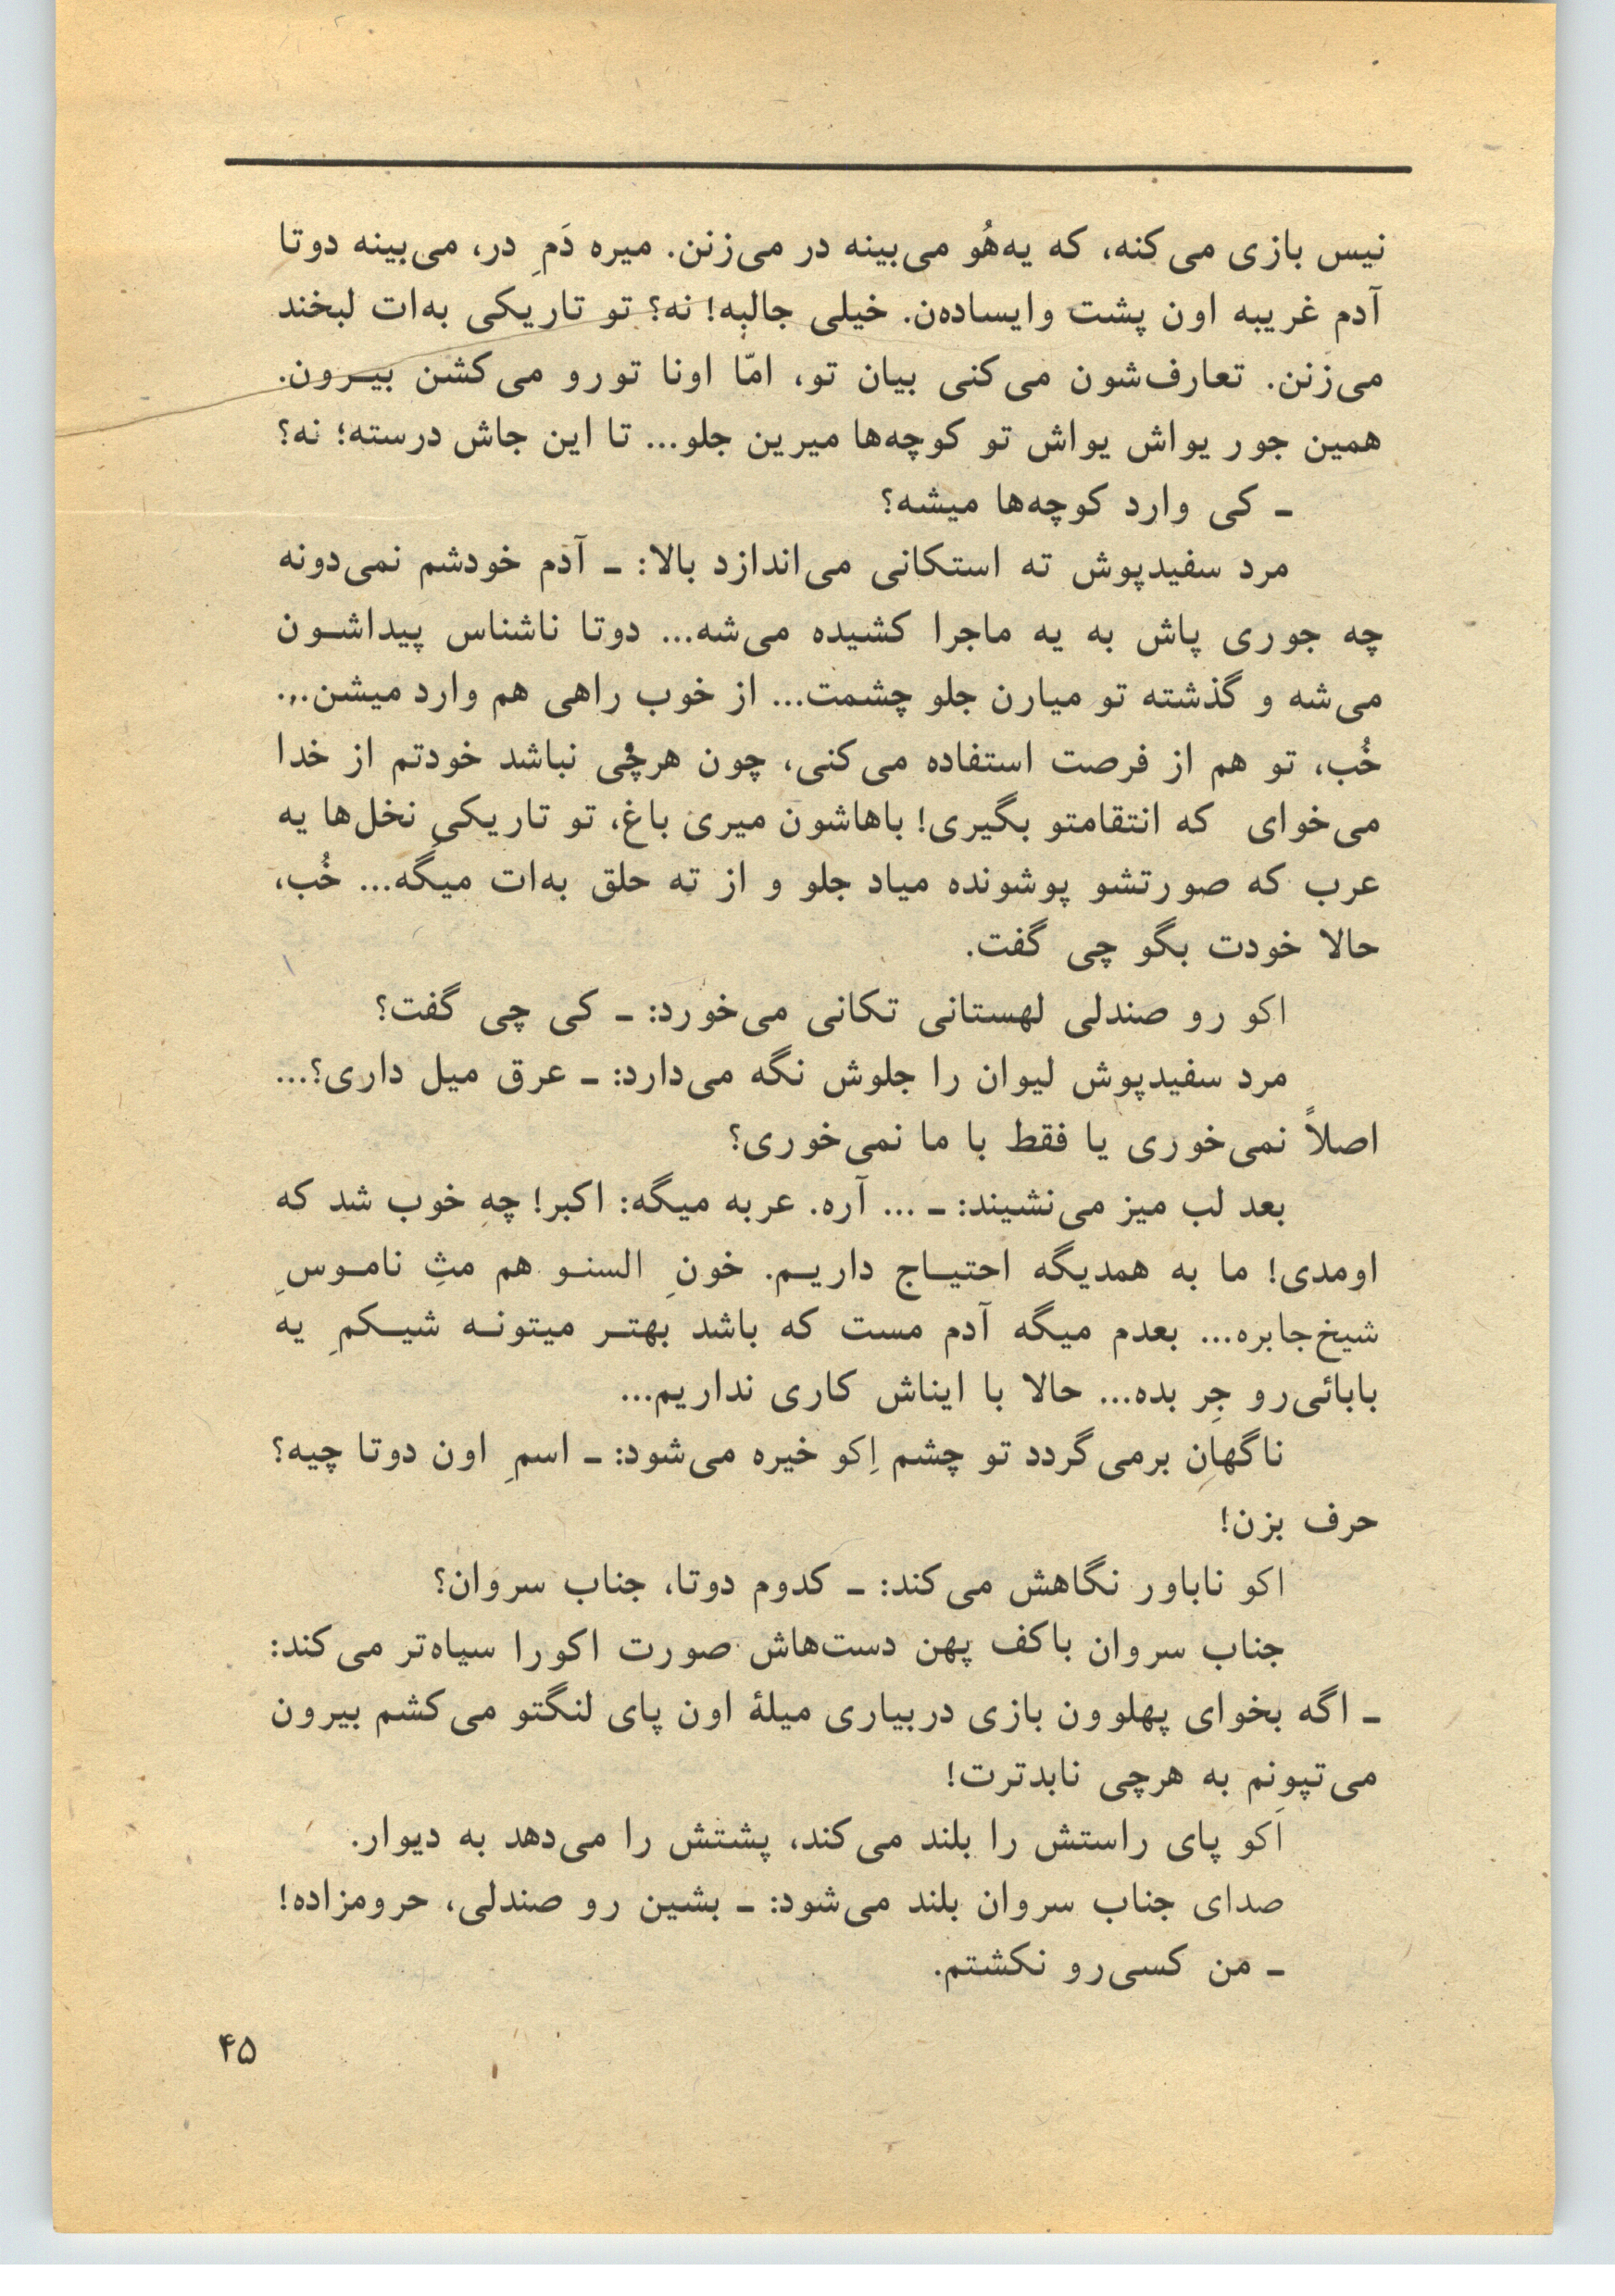 نیس بازی می‌کنه، که یه‌هُو می‌بینه در می‌زنن. میره دَمِ در، می‌بینه دوتا
آدم غریبه اون پشت وایساده‌ن. خیلی جالبه! نه؟ تو تاریکی به‌ات لبخند
می‌زنن. تعارف‌شون می‌کنی بیان تو، امّا اونا تورو می‌کشن بیـرون.
همین جور یواش یواش تو کوچه‌ها میرین جلو... تا این جاش درسته؛ نه؟
ـ کی وارد کوچه‌ها میشه؟
مرد سفیدپوش ته استکانی می‌اندازد بالا: ـ آدم خودشم نمی‌دونه
چه جوری پاش به یه ماجرا کشیده می‌شه... دوتا ناشناس پیداشـون
می‌شه و گذشته تو میارن جلو چشمت... از خوب راهی هم وارد میشن...
خُب، تو هم از فرصت استفاده می‌کنی، چون هرچی نباشد خودتم از خدا
می‌خوای که انتقامتو بگیری! باهاشون میری باغ، تو تاریکیِ نخل‌ها یه
عرب که صورتشو پوشونده میاد جلو و از ته حلق به‌ات میگه... خُب،
حالا خودت بگو چی گفت.
اکو رو صندلی لهستانی تکانی می‌خورد: ـ کی چی گفت؟
مرد سفیدپوش لیوان را جلوش نگه می‌دارد: ـ عرق میل داری؟...
اصلاً نمی‌خوری یا فقط با ما نمی‌خوری؟
بعد لب میز می‌نشیند: ـ ... آره. عربه میگه: اکبر! چه خوب شد که
اومدی! ما به همدیگه احتیـاج داریـم. خونِ السنـو هم مثِ نامـوسِ
شیخ‌جابره... بعدم میگه آدم مست که باشد بهتـر میتونـه شیـکمِ یه
بابائی‌رو جِر بده... حالا با ایناش کاری نداریم...
ناگهان برمی‌گردد تو چشم اِکو خیره می‌شود: ـ اسمِ اون دوتا چیه؟
حرف بزن!
اکو ناباور نگاهش می‌کند: ـ کدوم دوتا، جناب سروان؟
جناب سروان باکف پهن دست‌هاش صورت اکورا سیاه‌تر می‌کند:
ـ اگه بخوای پهلوون بازی دربیاری میلهٔ اون پای لنگتو می‌کشم بیرون
می‌تپونم به هرچی نابدترت!
اَکو پای راستش را بلند می‌کند، پشتش را می‌دهد به دیوار.
صدای جناب سروان بلند می‌شود: ـ بشین رو صندلی، حرومزاده!
ـ من کسی‌رو نکشتم.
۴۵